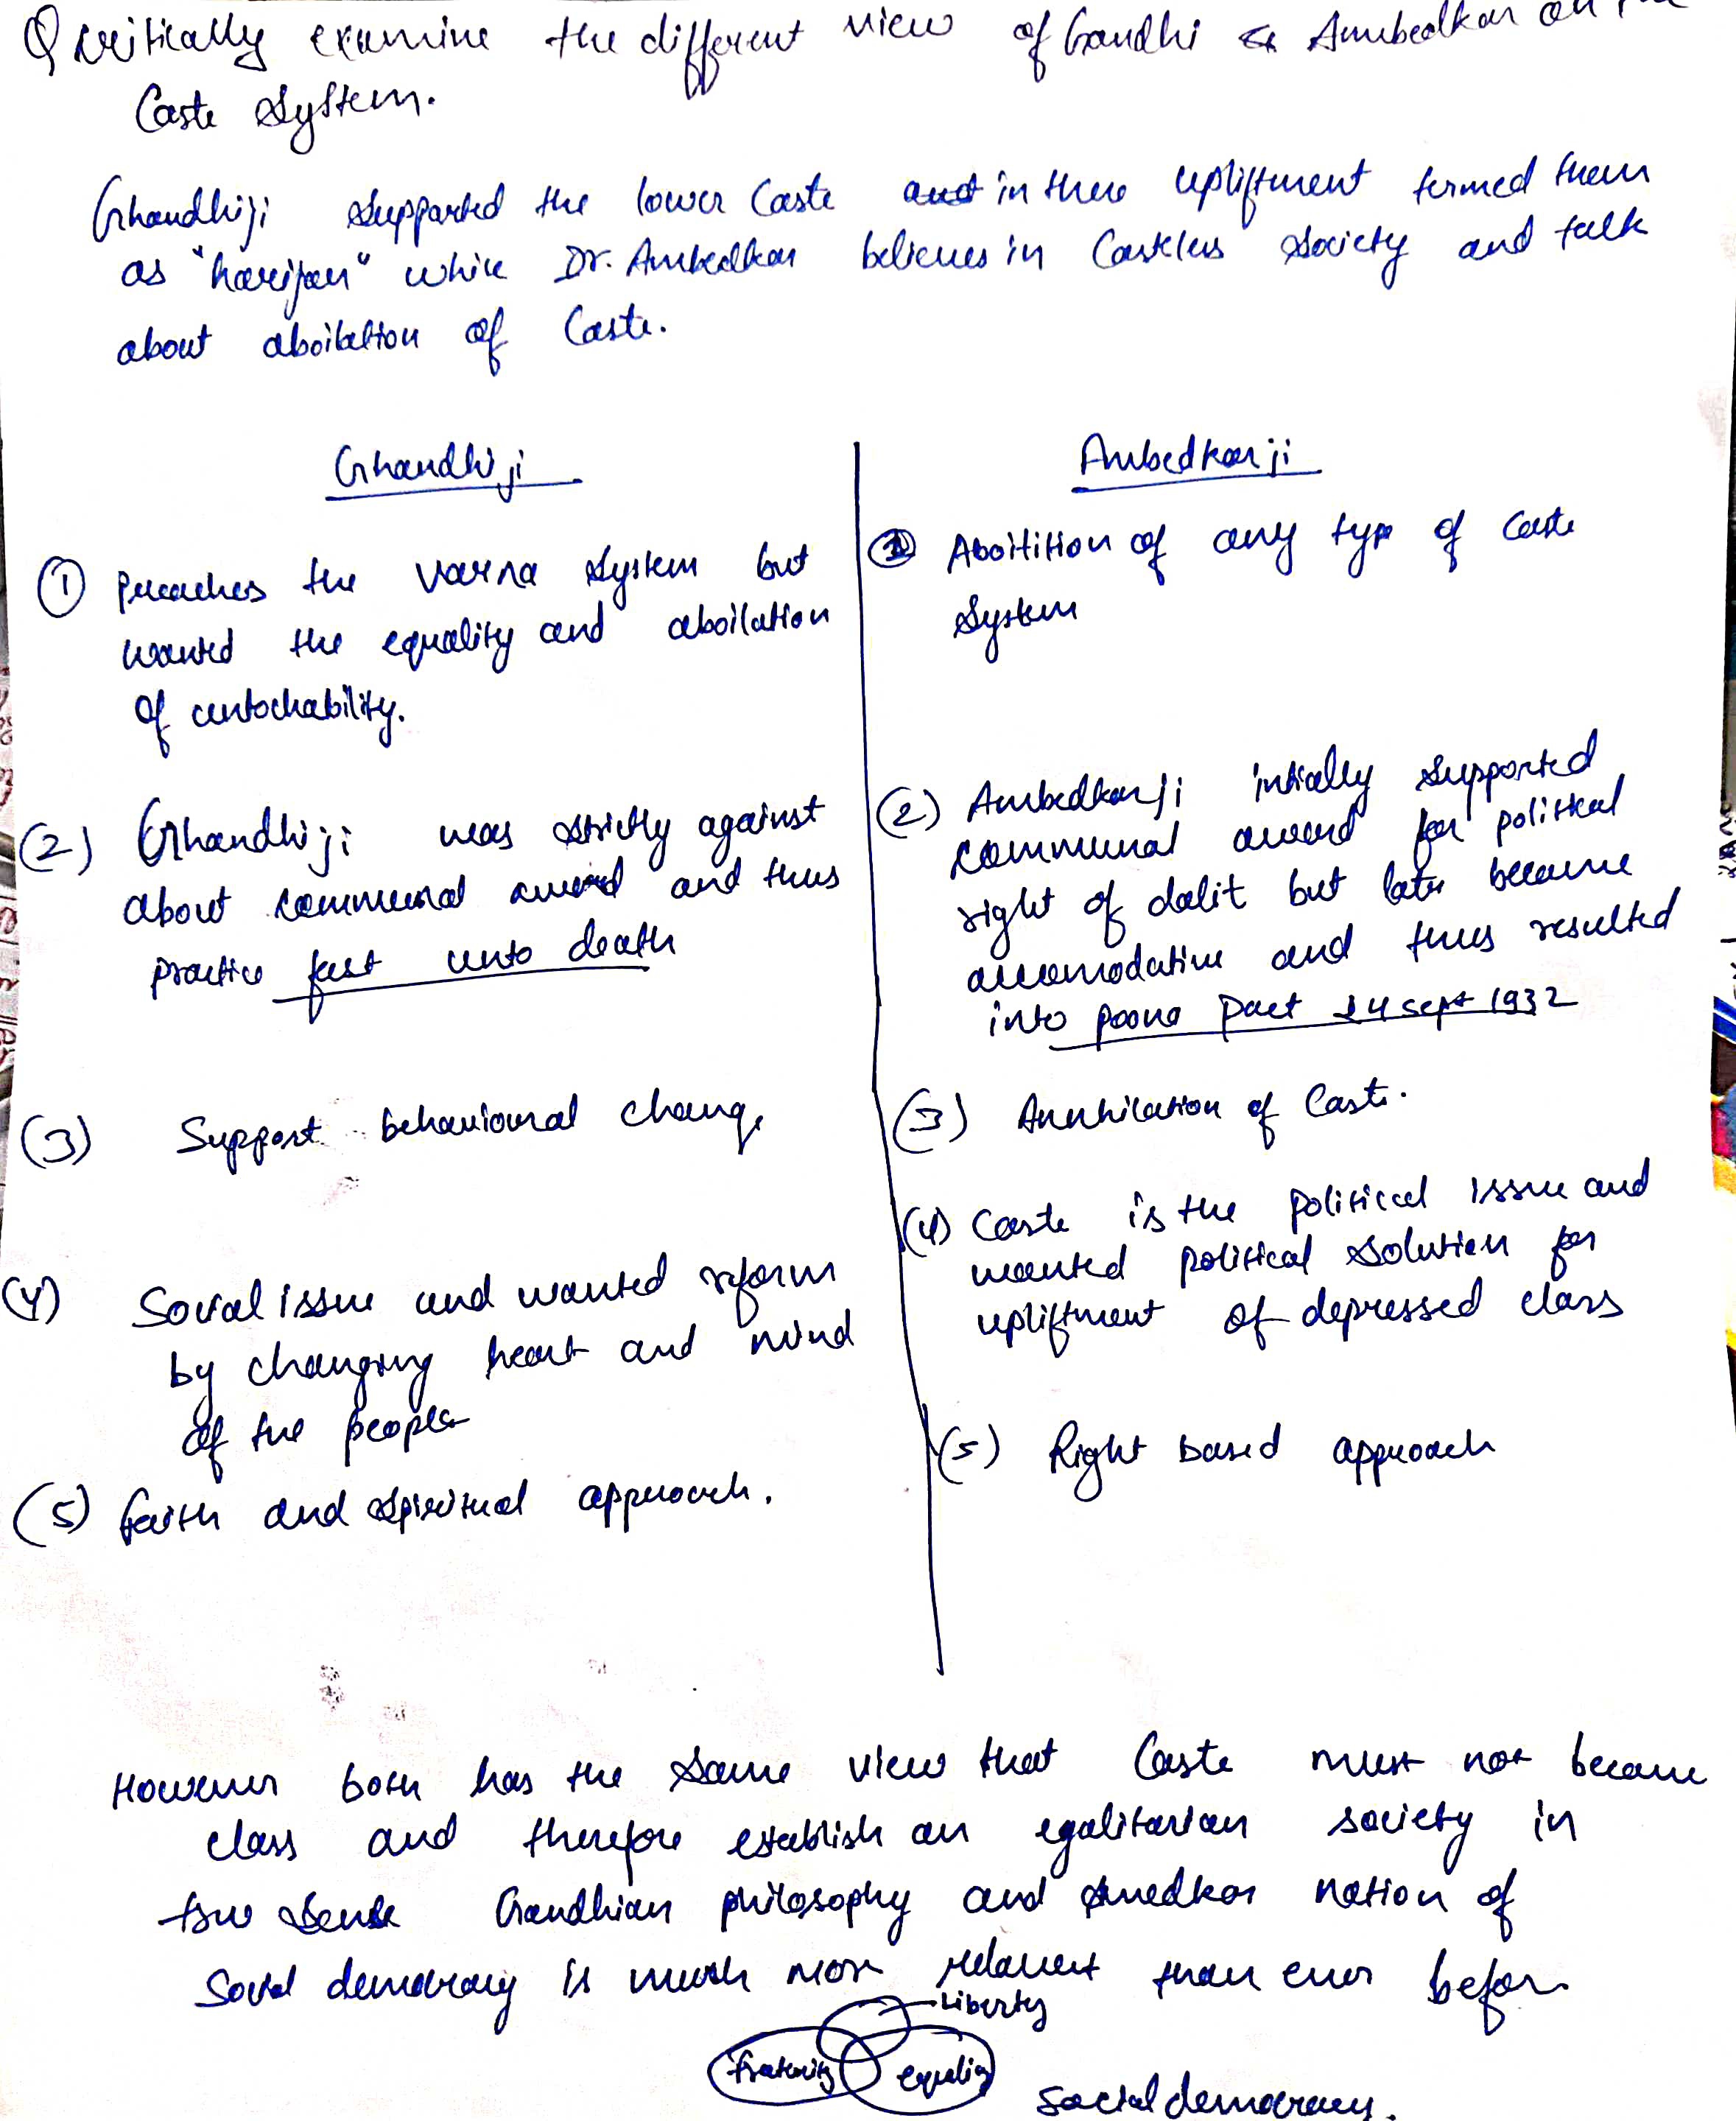 Q critically examine the different view of Gandhi & Ambedkar on the
Caste System.
Ghandhiji supported the lower Caste in there upliftment termed them
as "harijan" while Dr. Ambedkar believes in Casteless society and talk
about aboilation of Caste.
Ghandhiji
① Preaches the Varna System but
wanted the equality and aboilation
of untochability.
(2) Ghandhiji was strictly against
about communal award and thus
practice fast unto death
(3) Support behavioural change
(4) Social issue and wanted reform
by changing heart and mind
of the people
(5) faith and spiritual approach.
Ambedkar ji
① Aboitition of any type of Caste
System
(2) Ambedkarji intially supported
communal award for political
right of dalit but later became
accomodative and thus resulted
into poona Pact 24 sept 1932
(3) Annhilation of Caste.
(4) Caste is the political issue and
wanted political solution for
upliftment of depressed class
(5) Right based approach
However both has the same view that Caste must not became
class and therefore establish an egalitarian society in
true sense Gandhian philosophy and Amedkar notion of
Social democracy is much more relavent than ever before
Liberty
fraternity equality
social democracy.